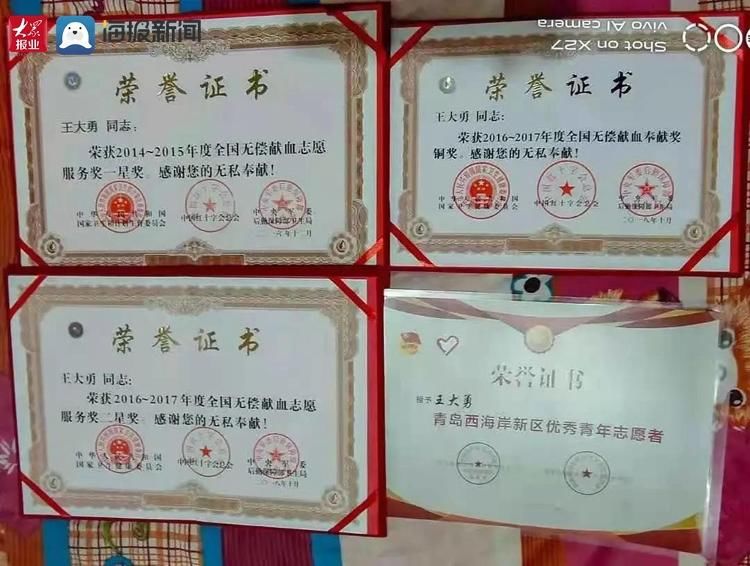 大众
报业
海报新闻
Shot on X27
vivo AI camera
荣誉证书
王大勇 同志：
荣获2014~2015年度全国无偿献血志愿
服务奖一星奖。感谢您的无私奉献！
中华人民共和国
国家卫生和计划生育委员会
中国红十字会总会
中央军委
后勤保障部卫生局
二〇一六年十二月
荣誉证书
王大勇 同志：
荣获2016~2017年度全国无偿献血奉献奖
铜奖。感谢您的无私奉献！
中华人民共和国
国家卫生健康委员会
中国红十字会总会
中央军委
后勤保障部卫生局
二〇一八年十月
荣誉证书
王大勇 同志：
荣获2016~2017年度全国无偿献血志愿
服务奖二星奖。感谢您的无私奉献！
中华人民共和国
国家卫生健康委员会
中国红十字会总会
中央军委
后勤保障部卫生局
二〇一八年十月
荣誉证书
授予 王大勇
青岛西海岸新区优秀青年志愿者